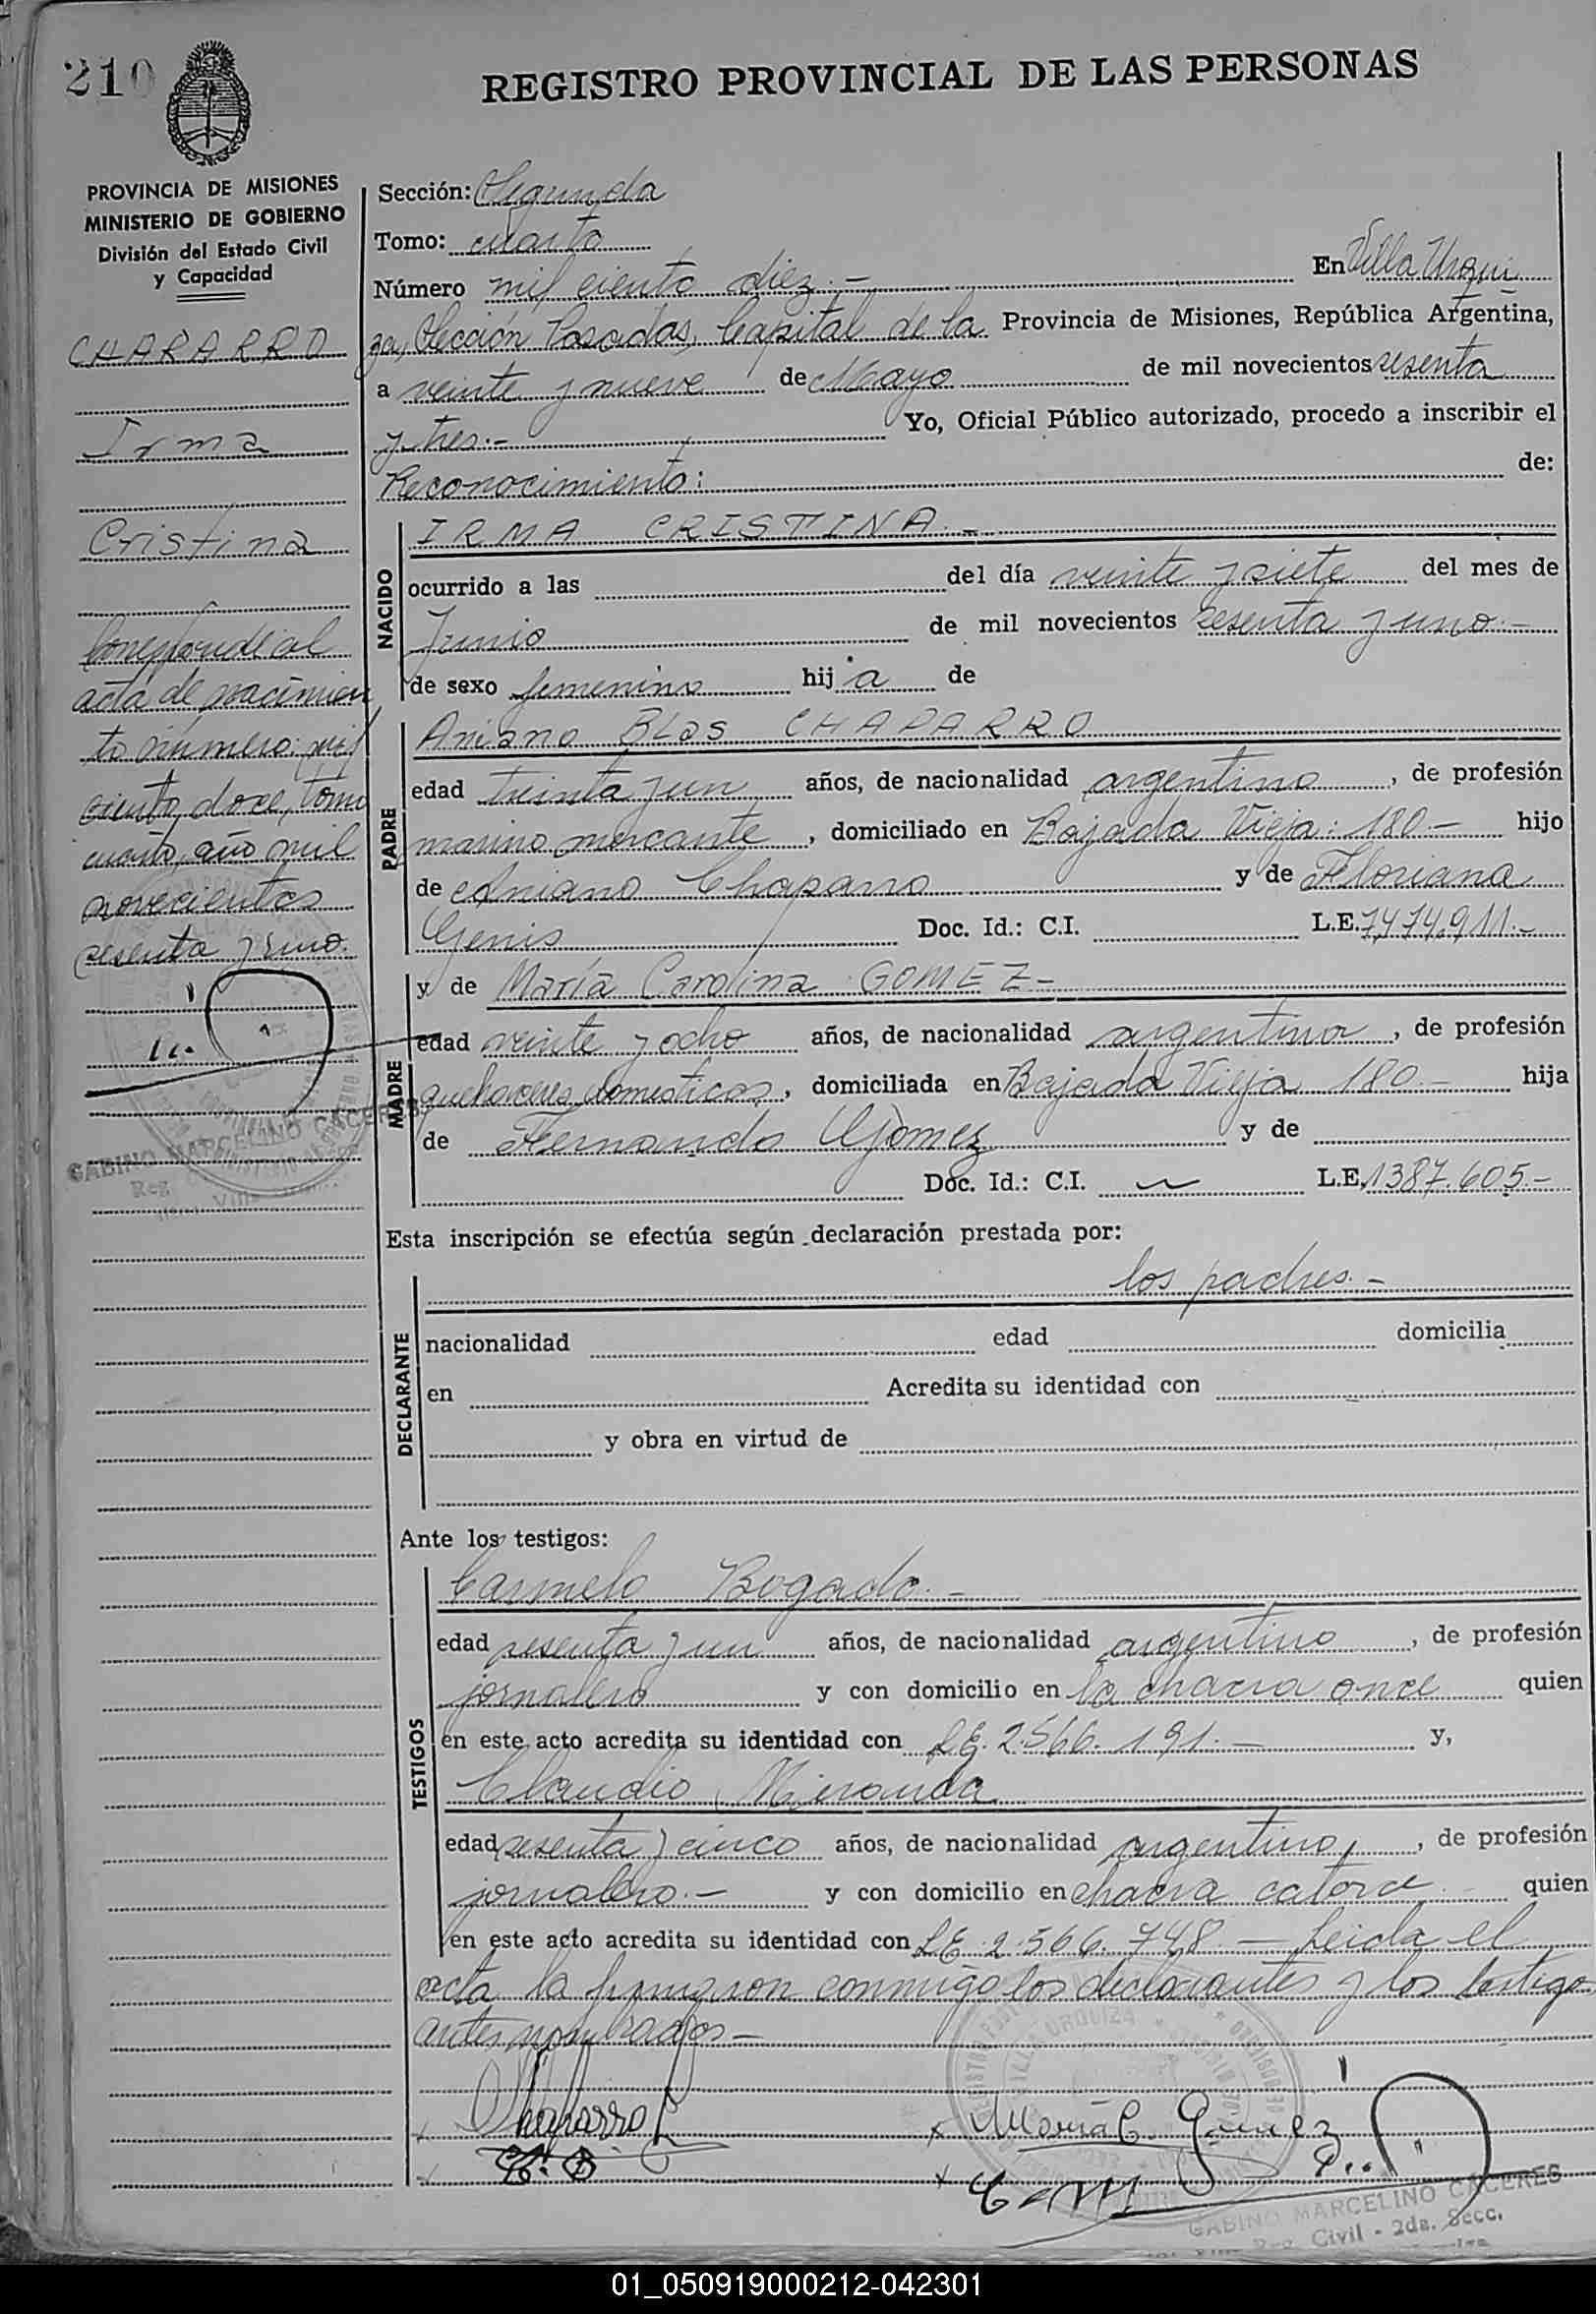 210
REGISTRO PROVINCIAL DE LAS PERSONAS
PROVINCIA DE MISIONES
MINISTERIO DE GOBIERNO
División del Estado Civil
y Capacidad
CHAPARRO
Irma
Cristina
acta de nacimien
to número: mil
ciento doce, tomo
cuarto, año mil
novecientos
sesenta y uno.
GABINO MARCELINO CACERES
Sección: Segunda
Tomo: cuarto
Número mil ciento diez.- En Villa Urqui
za, Sección Posadas, Capital de la Provincia de Misiones, República Argentina,
a veinte y nueve de Mayo de mil novecientos sesenta
y tres.- Yo, Oficial Público autorizado, procedo a inscribir el
Reconocimiento: de:
NACIDO
IRMA CRISTINA.-
ocurrido a las del día veinte y siete del mes de
Junio de mil novecientos sesenta y uno.-
de sexo femenino hij a de
PADRE
Aniano BLas CHAPARRO
edad treinta y un años, de nacionalidad argentino, de profesión
marino mercante, domiciliado en Bajada Vieja: 180.- hijo
de Aniano Chaparro y de Floriana
Genis Doc. Id.: C.I. L.E. 7.474.911.-
MADRE
y de María Carolina GOMEZ-
edad veinte y ocho años, de nacionalidad argentina, de profesión
quehaceres domesticos, domiciliada en Bajada Vieja 180.- hija
de Fernando Gómez y de
Doc. Id.: C.I. L.E. 1387.605.-
Esta inscripción se efectúa según declaración prestada por:
DECLARANTE
los padres.-
nacionalidad edad domicilia
en Acredita su identidad con
y obra en virtud de
Ante los testigos:
TESTIGOS
Carmelo Bogado.-
edad sesenta y un años, de nacionalidad argentino, de profesión
jornalero y con domicilio en la chacra once quien
en este acto acredita su identidad con L.E. 2.566.191.- y,
Claudio Miranda
edad sesenta y cinco años, de nacionalidad argentino, de profesión
jornalero.- y con domicilio en chacra catorce quien
en este acto acredita su identidad con L.E. 2.566.748.- Leida el
acta la firmaron conmigo los declarantes y los testigo
antes nombrados-
Chaparro
María C. Gomez
GABINO MARCELINO CACERES
Reg. Civil - 2da. Secc.
01_050919000212-042301